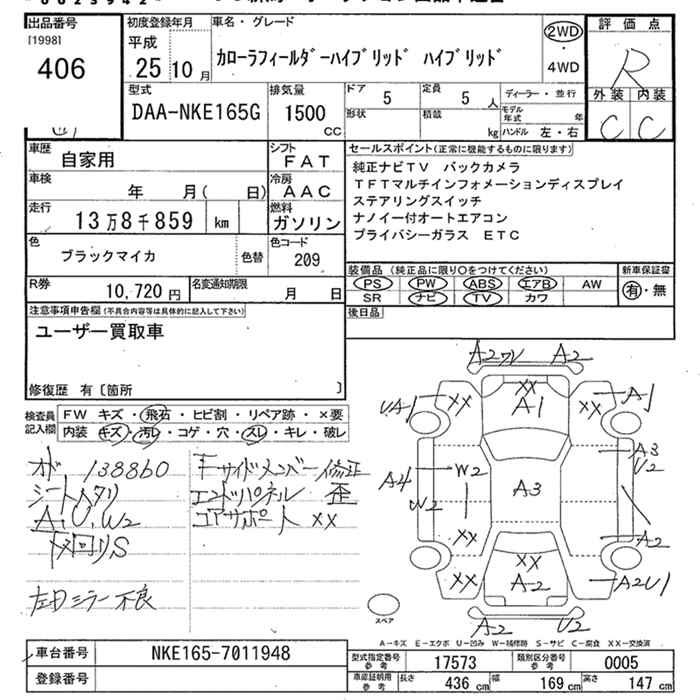 出品番号
[1998]
406
初度登録年月
平成
25 10 月
車名・グレード
カローラフィールダーハイブリッド ハイブリッド
2WD
・
4WD
評価点
R
外装 内装
C C
型式
DAA-NKE165G
排気量
1500
CC
ドア 5
形状
定員 5 人
積載 kg
ディーラー・並行
モデル年式 年
ハンドル 左・右
車歴
自家用
シフト
FAT
車検
年 月( 日)
冷房
AAC
走行
13万8千859 km
燃料
ガソリン
色
ブラックマイカ
色替
色コード
209
R券
10,720 円
名変通知期限
月 日
セールスポイント(正常に機能するものに限ります)
純正ナビTV バックカメラ
TFTマルチインフォメーションディスプレイ
ステアリングスイッチ
ナノイー付オートエアコン
プライバシーガラス ETC
装備品 (純正品に限り○をつけてください)
PS PW ABS エアB AW
SR ナビ TV カワ
新車保証書
有・無
後日品
注意事項申告欄(不具合内容等は具体的に記入して下さい)
ユーザー買取車
修復歴 有〔箇所 〕
検査員記入欄
FW キズ・飛石・ヒビ割・リペア跡・×要
内装 キズ・汚レ・コゲ・穴・スレ・キレ・破レ
オド 138860
シートヘタリ
A,U,W2
下回りS
左ミラー不良
サイドメンバー修正
エンドパネル 歪
コアサポート XX
A2 A2
UA1 XX XX XX A1
A1
A3
U2
A4 W2 A3
W2
XX A2
XX XX A2U1
A2
A2 U2
スペア
A-キズ E-エクボ U-凹み W-補修跡 S-サビ C-腐食 XX-交換済
車台番号 NKE165-7011948
登録番号
型式指定番号 参考 17573
類別区分番号 参考 0005
車庫証明用 参考
長さ 436 cm 幅 169 cm 高さ 147 cm